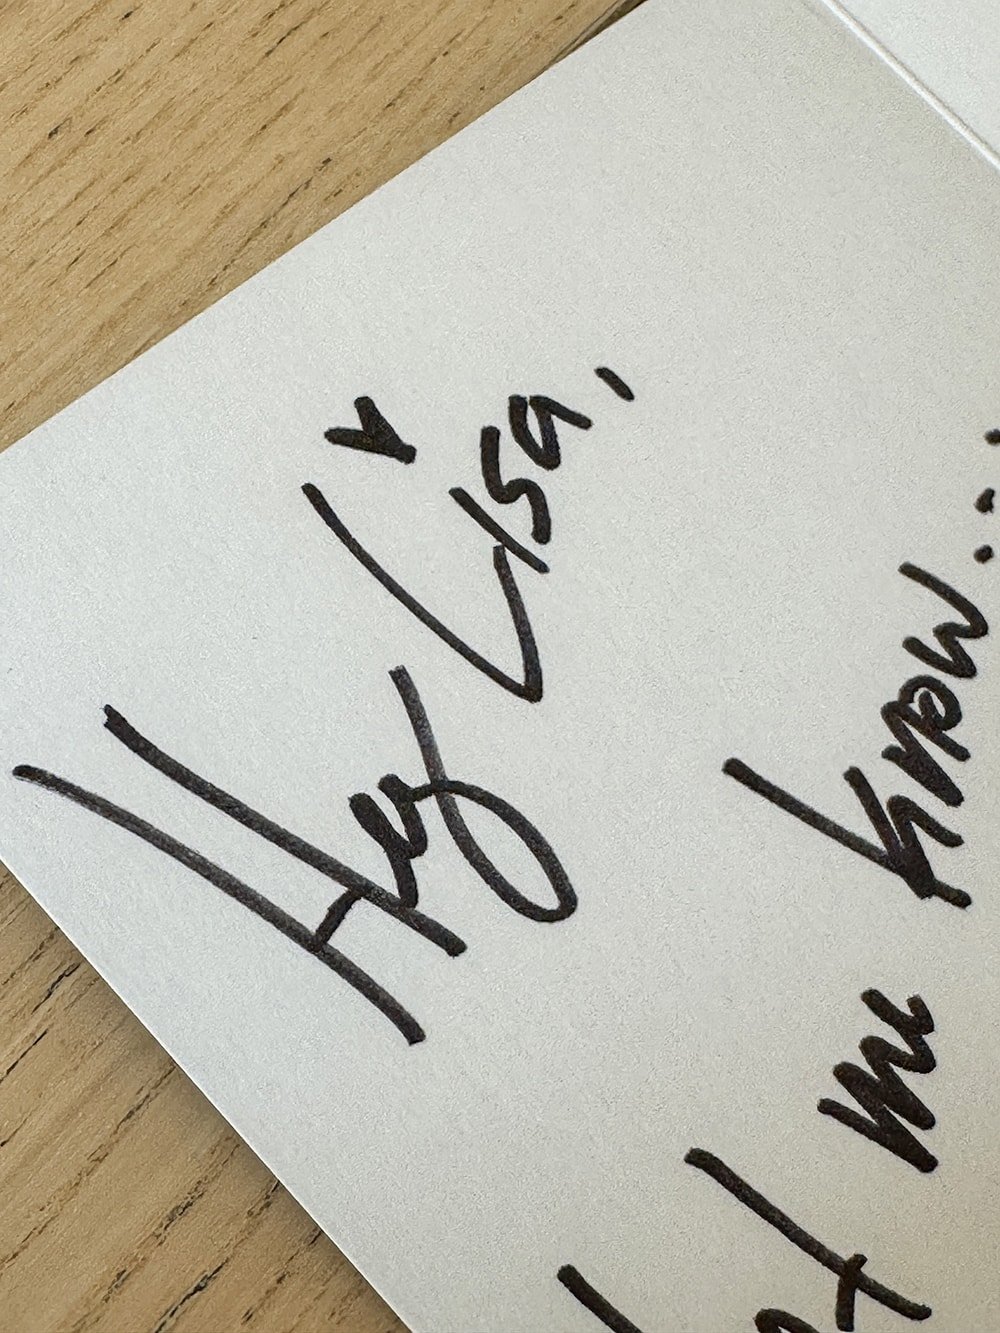 Hey Lisa,
me know...